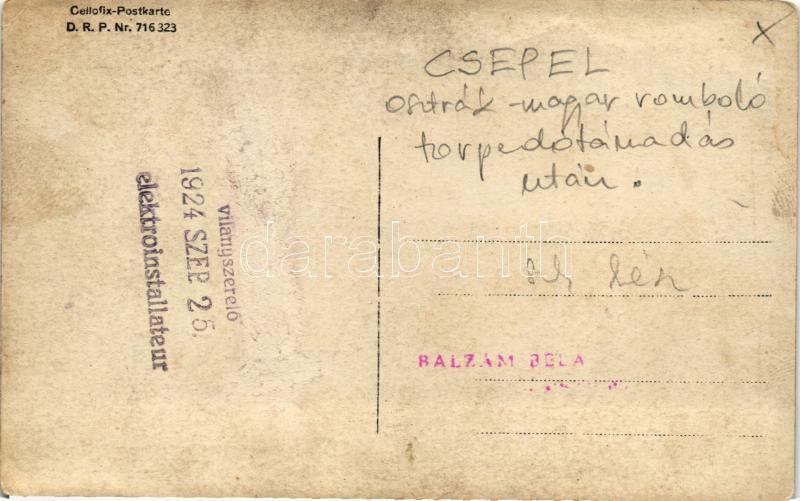 Cellofix-Postkarte
D. R. P. Nr. 716 323
X
CSEPEL
osztrák-magyar romboló
torpedótámadás
után.
villanyszerelő
1924 SZEP 25.
elektroinstallateur
BALZÁM BÉLA
darabanth